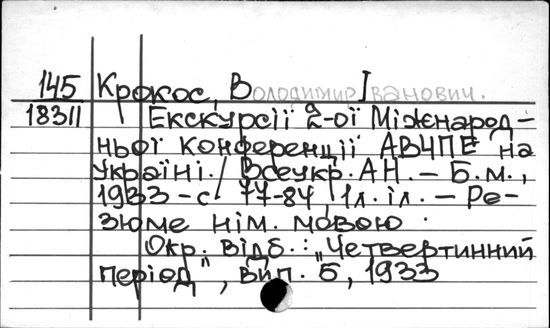 145 Крокос, Володимир Іванович.
18311 Екскурсії 2-ої Міжнарод-
ньої конференції АВЧПЕ на
Україні. / Всеукр. АН. – Б.м.,
1933 – с. 77-84, 1л. іл. – Ре-
зюме нім. мовою.
Окр. відб.: „Четвертинний
період", вип. 5, 1933